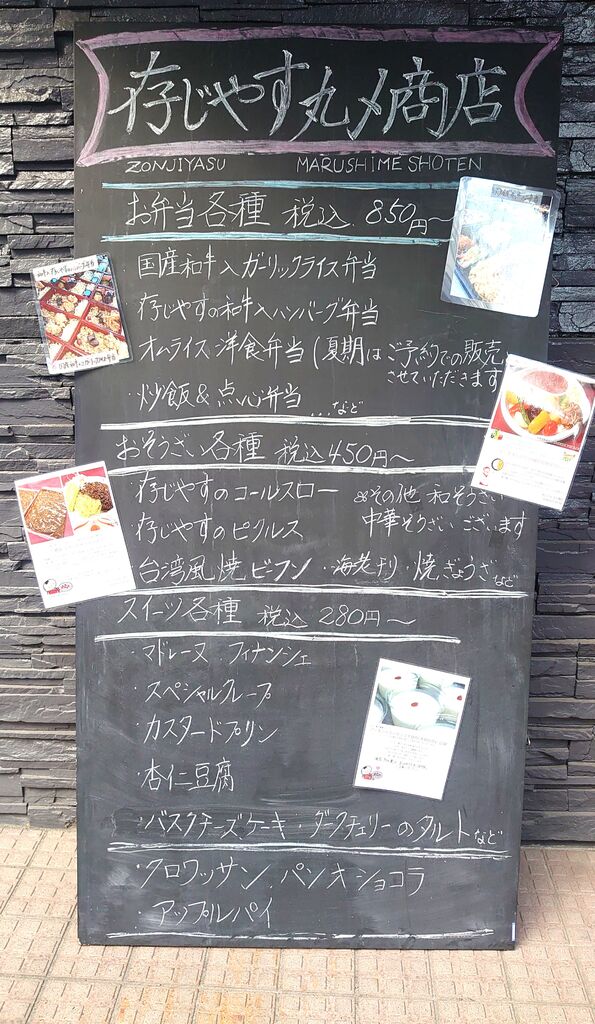 存じやす丸〆商店
ZONJIYASU MARUSHIME SHOTEN
お弁当各種 税込 850円～
国産和牛入ガーリックライス弁当
存じやすの和牛入ハンバーグ弁当
オムライス洋食弁当(夏期はご予約での販売
させていただきます
・炒飯&点心弁当...など
おそうざい各種 税込450円～
・存じやすのコールスロー &その他 和そうざい
・存じやすのピクルス 中華そうざいございます
・台湾風焼ビーフン・海老チリ・焼ぎょうざなど
スイーツ各種 税込 280円～
・マドレーヌ フィナンシェ
・スペシャルクレープ
・カスタードプリン
・杏仁豆腐
・バスクチーズケーキ・ダークチェリーのタルトなど
・クロワッサン.パンオショコラ
・アップルパイ